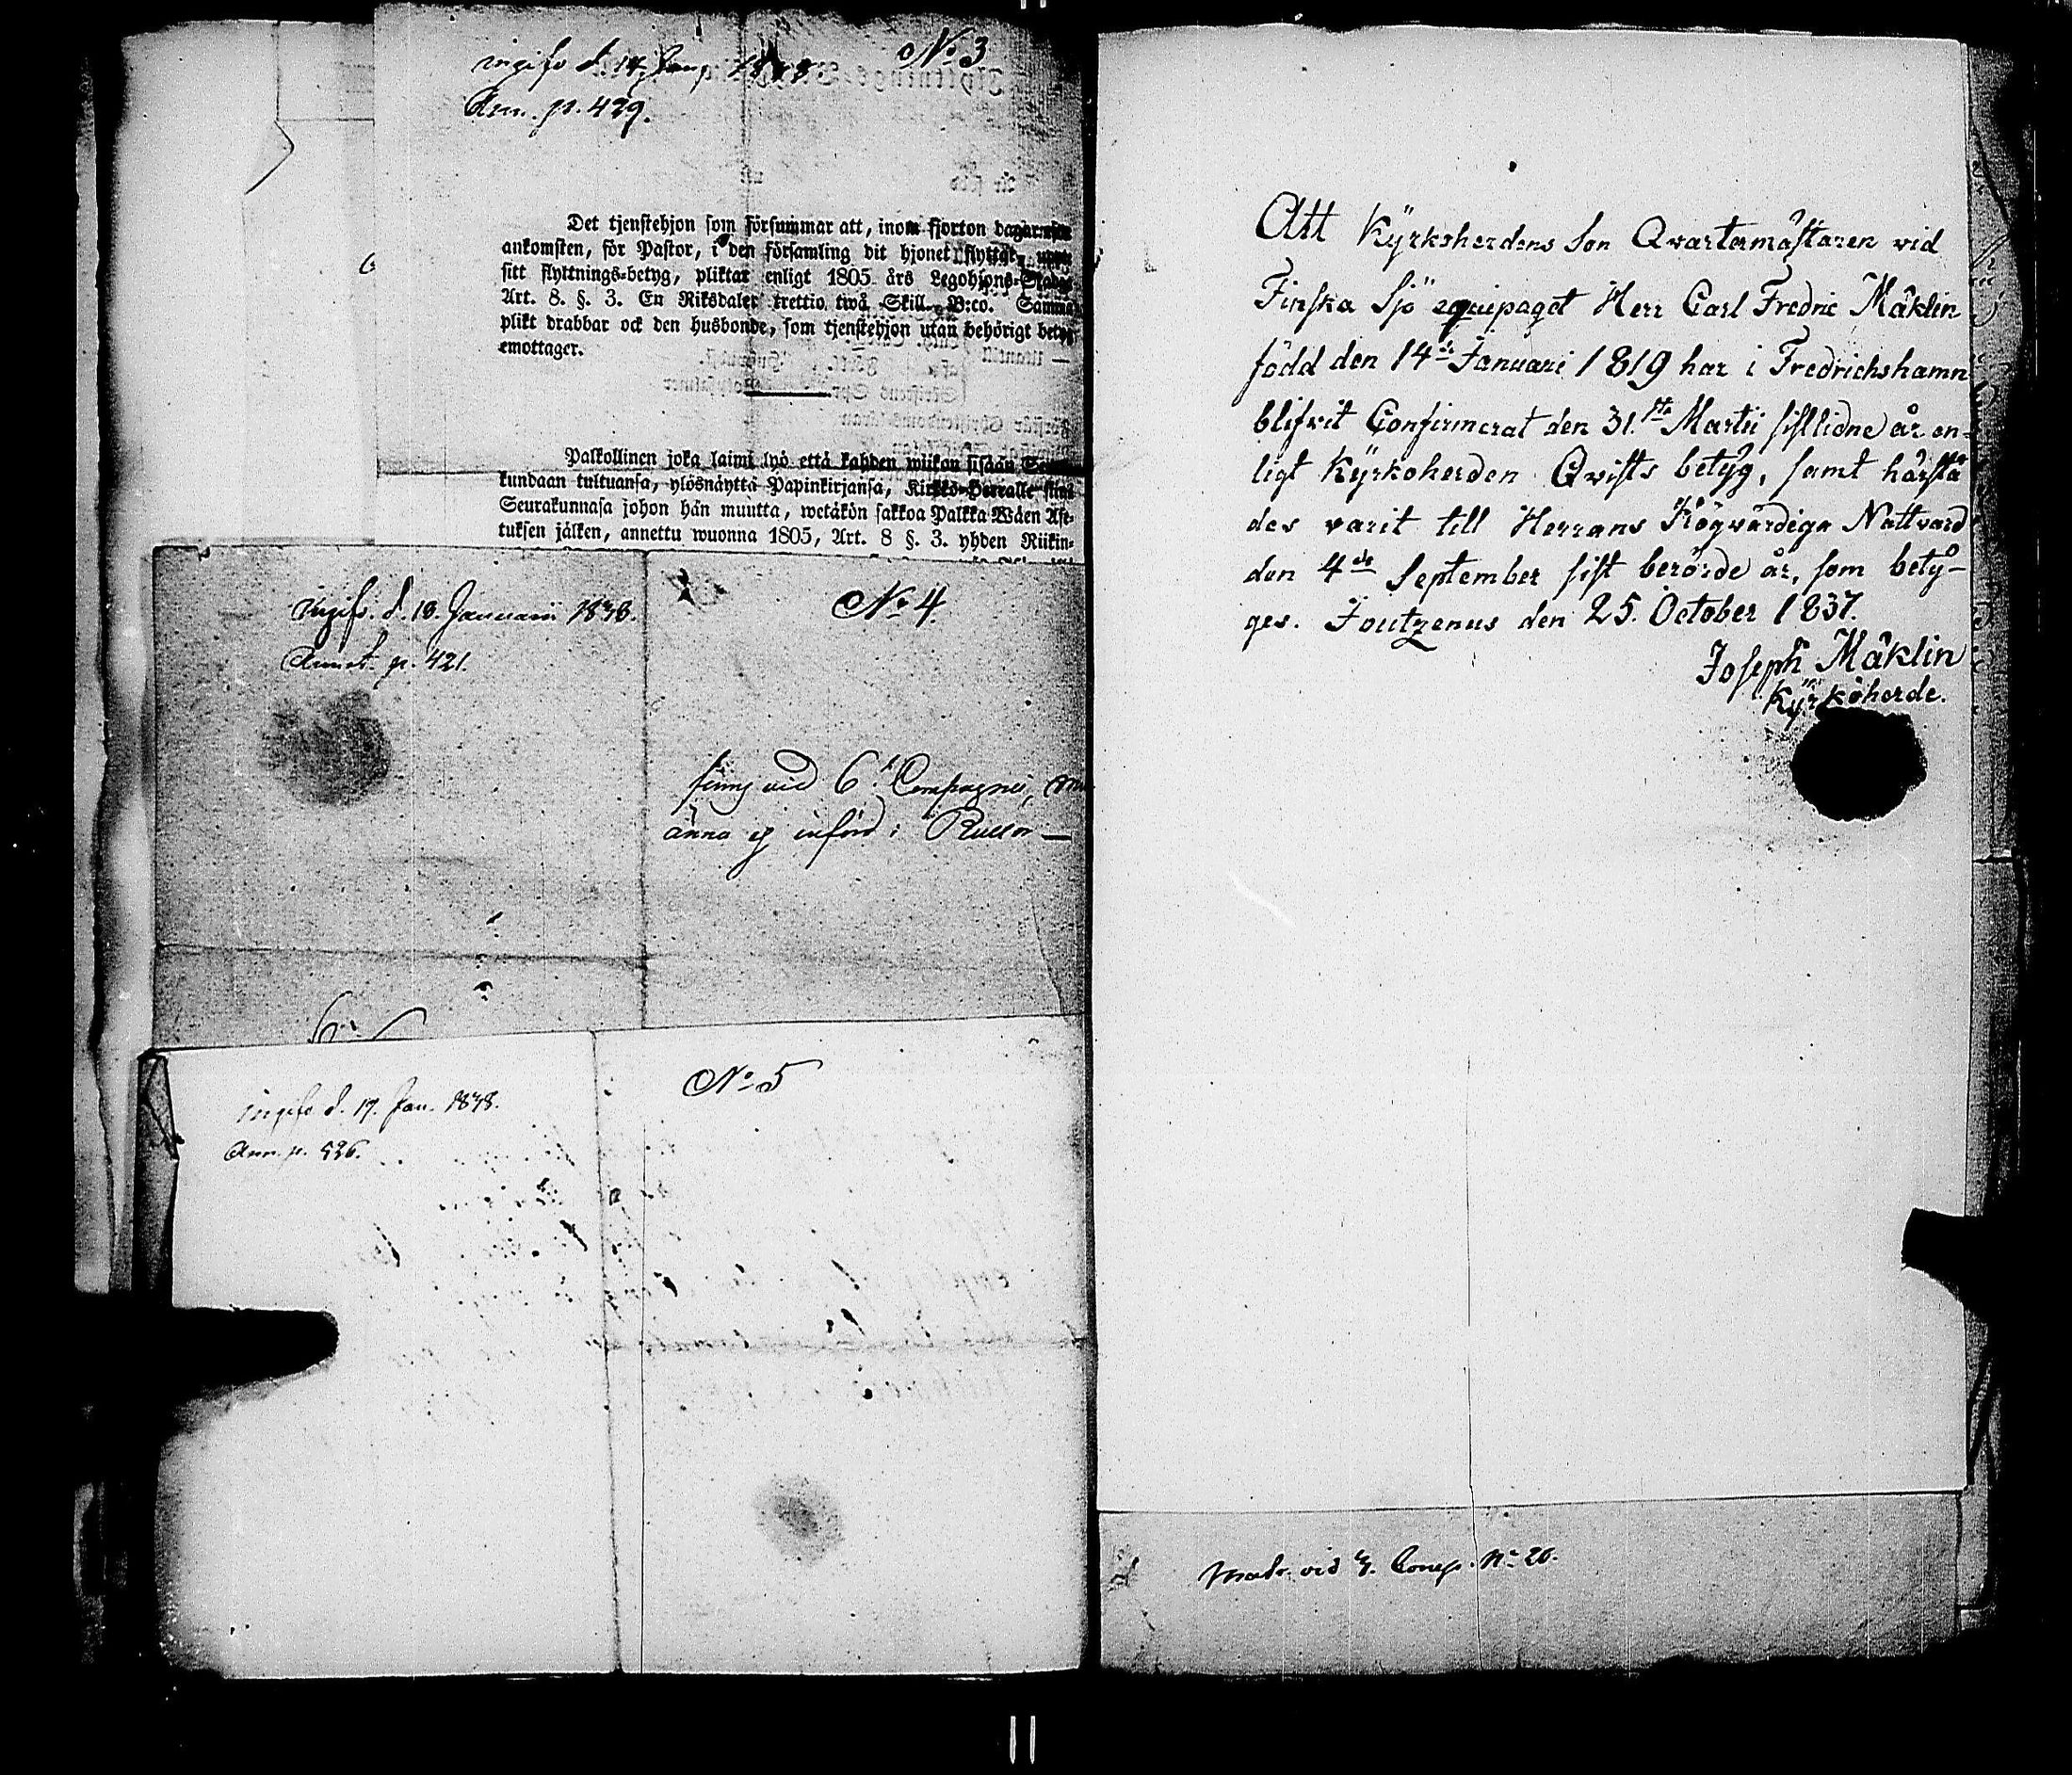 No 3
ingifv d. 14 Jan. 1838
Ann. p. 429.
Det tjenstehjon som försummar att, inom fjorton dagar efter
ankomsten, för Pastor, i den församling dit hjonet flyttat, uppte
sitt flyttnings-betyg, pliktar enligt 1805 års Legohjons-Stadga
Art. 8. §. 3. En Riksdaler trettio twå Skill. B:co. Samma
plikt drabbar ock den husbonde, som tjenstehjon utan behörigt betyg
emottager.
Palkollinen joka laimi lyö että kahden wiikon sisään Seura-
kundaan tultuansa, ylösnäyttä Papinkirjansa, Kirkko-Herralle siinä
Seurakunnasa johon hän muutta, wetäkön sakkoa Palkka Wäen Ase-
tuksen jälken, annettu wuonna 1805, Art. 8 §. 3. yhden Riikin-
No 4.
ingifv. d. 13. Januarii 1838.
Annot. p. 421.
finns vid 6t Compagnie, men
änna ej införd i Rullor —
No 5
ingifv d. 17. Jan. 1838.
Ann. p. 426.
Att Kyrkoherdens Son Qvartermästaren vid
Finska Sjö equipaget Herr Carl Fredric Mäklin
född den 14de Januari 1819 har i Fredrichshamn
blifvit Confirmerat den 31.sta Martii sistlidne år en-
ligt Kyrkoherden Qvists betyg, samt härstä
des varit till Herrans Högvärdiga Nattvard
den 4de September sist berörde år, som bety-
ges. Joutzenus den 25. October 1837.
Joseph Mäklin
Kyrkoherde.
vid 4. Comp. No 26.